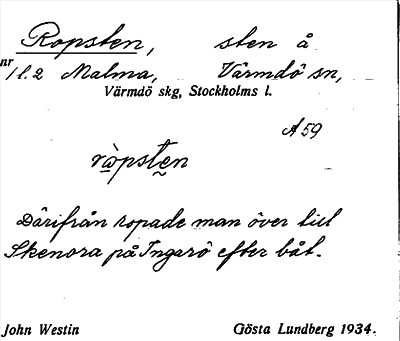 Ropsten, sten å
nr 1 l. 2 Malma, Värmdö sn,
Värmdö skg, Stockholms l.
A 59
ràpsten
Därifrån ropade man över till
Skenora på Ingarö efter båt.
John Westin Gösta Lundberg 1934.